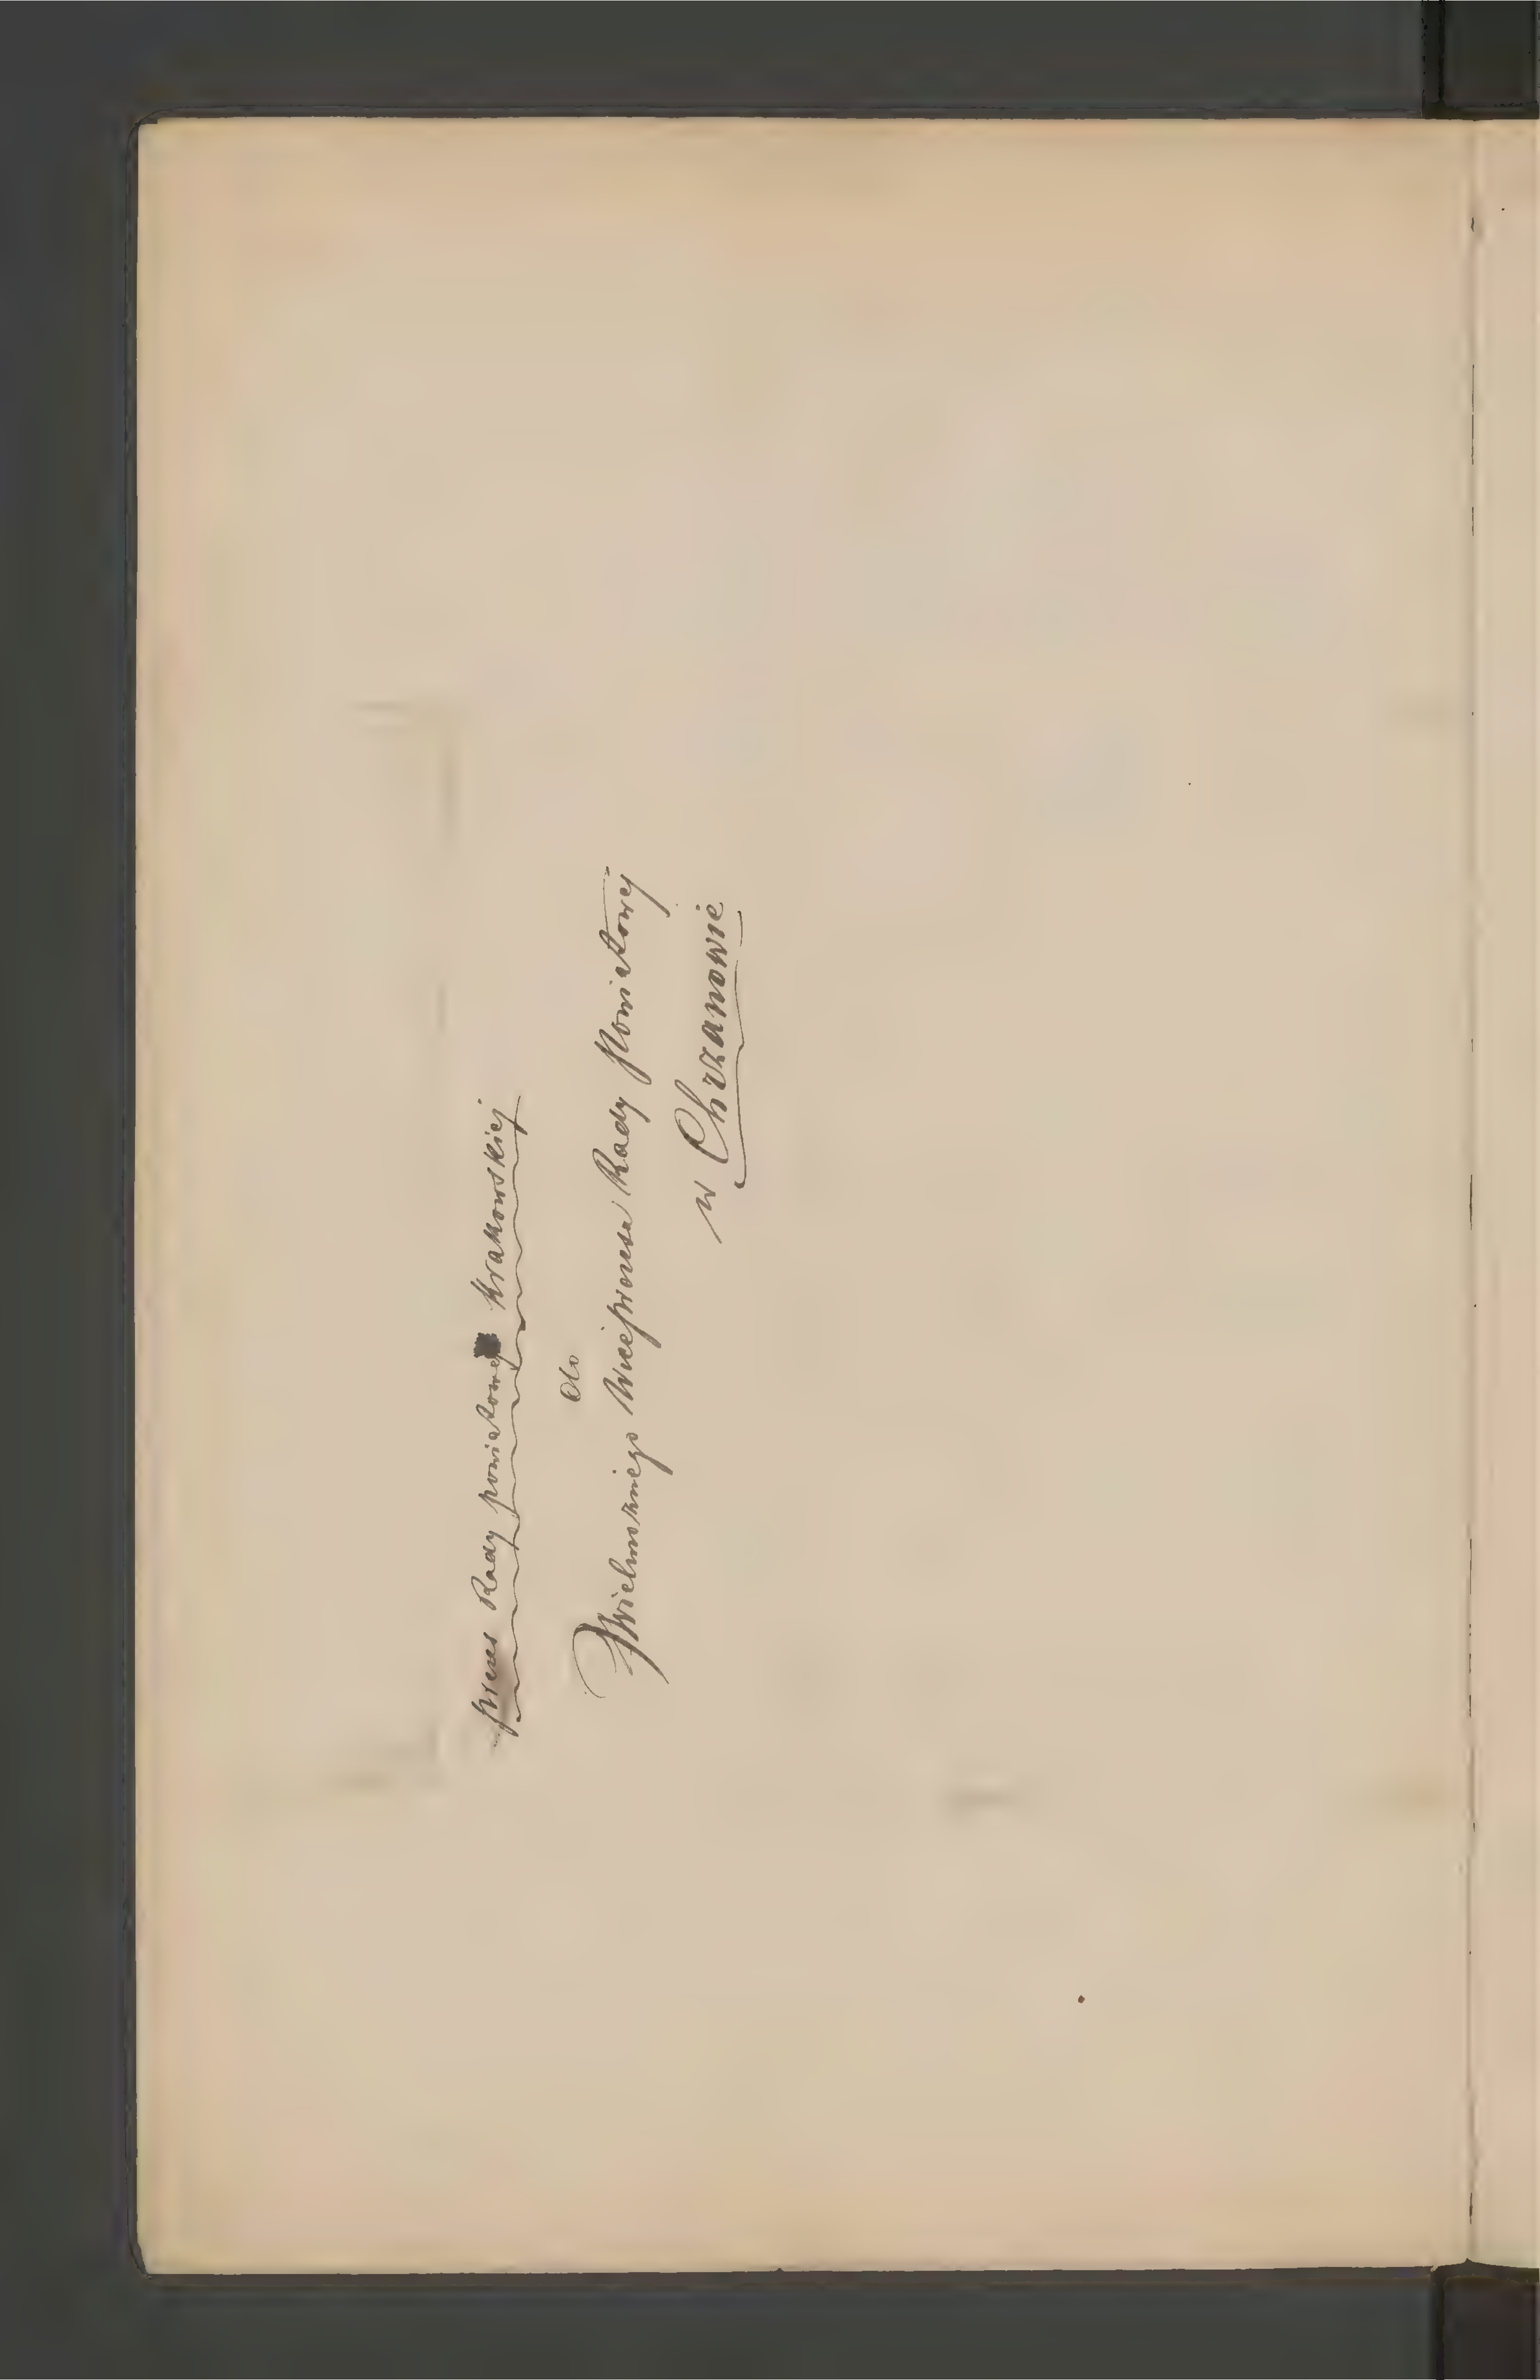 Prezes Rady powiatowej Krakowskiej
do
Wielmożnego Wiceprezesa Rady Powiatowej
w Chrzanowie